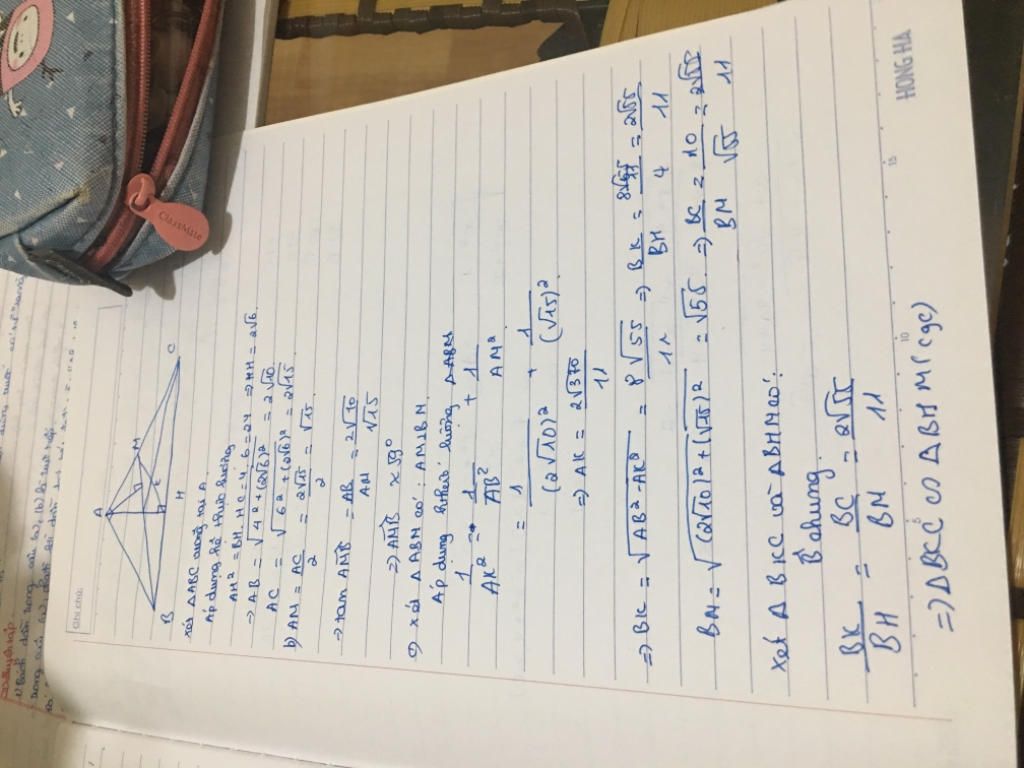 Ghi chú:
A
M
K
E
B
H
C
xét △ABC vuông tại A
Áp dụng hệ thức lượng
AH² = BH.HC = 4.6 = 24 => AH = 2√6.
→ AB = √4² + (2√6)² = 2√10
AC = √6² + (2√6)² = 2√15
b) AM = AC/2 = 2√15/2 = √15
→ tan AMB = AB/AM = 2√10/√15
=> AMB ≈ 59°
c) xét △ABM có: AM⊥BM
Áp dụng hệ thức lượng △ABM
1/AK² = 1/AB² + 1/AM²
= 1/(2√10)² + 1/(√15)²
=> AK = 2√330/11
=> BK = √AB² - AK² = 8√55/11 => BK/BH = 8√55/11/4 = 2√55/11
BM = √(2√10)² + (√15)² = √55 => BC/BM = 10/√55 = 2√55/11
Xét △BKC và △BHM có:
B chung
BK/BH = BC/BM = 2√55/11
=> △BCC ∽ △BHM (cgc)
HONG HA
5
10
15
ClassMate